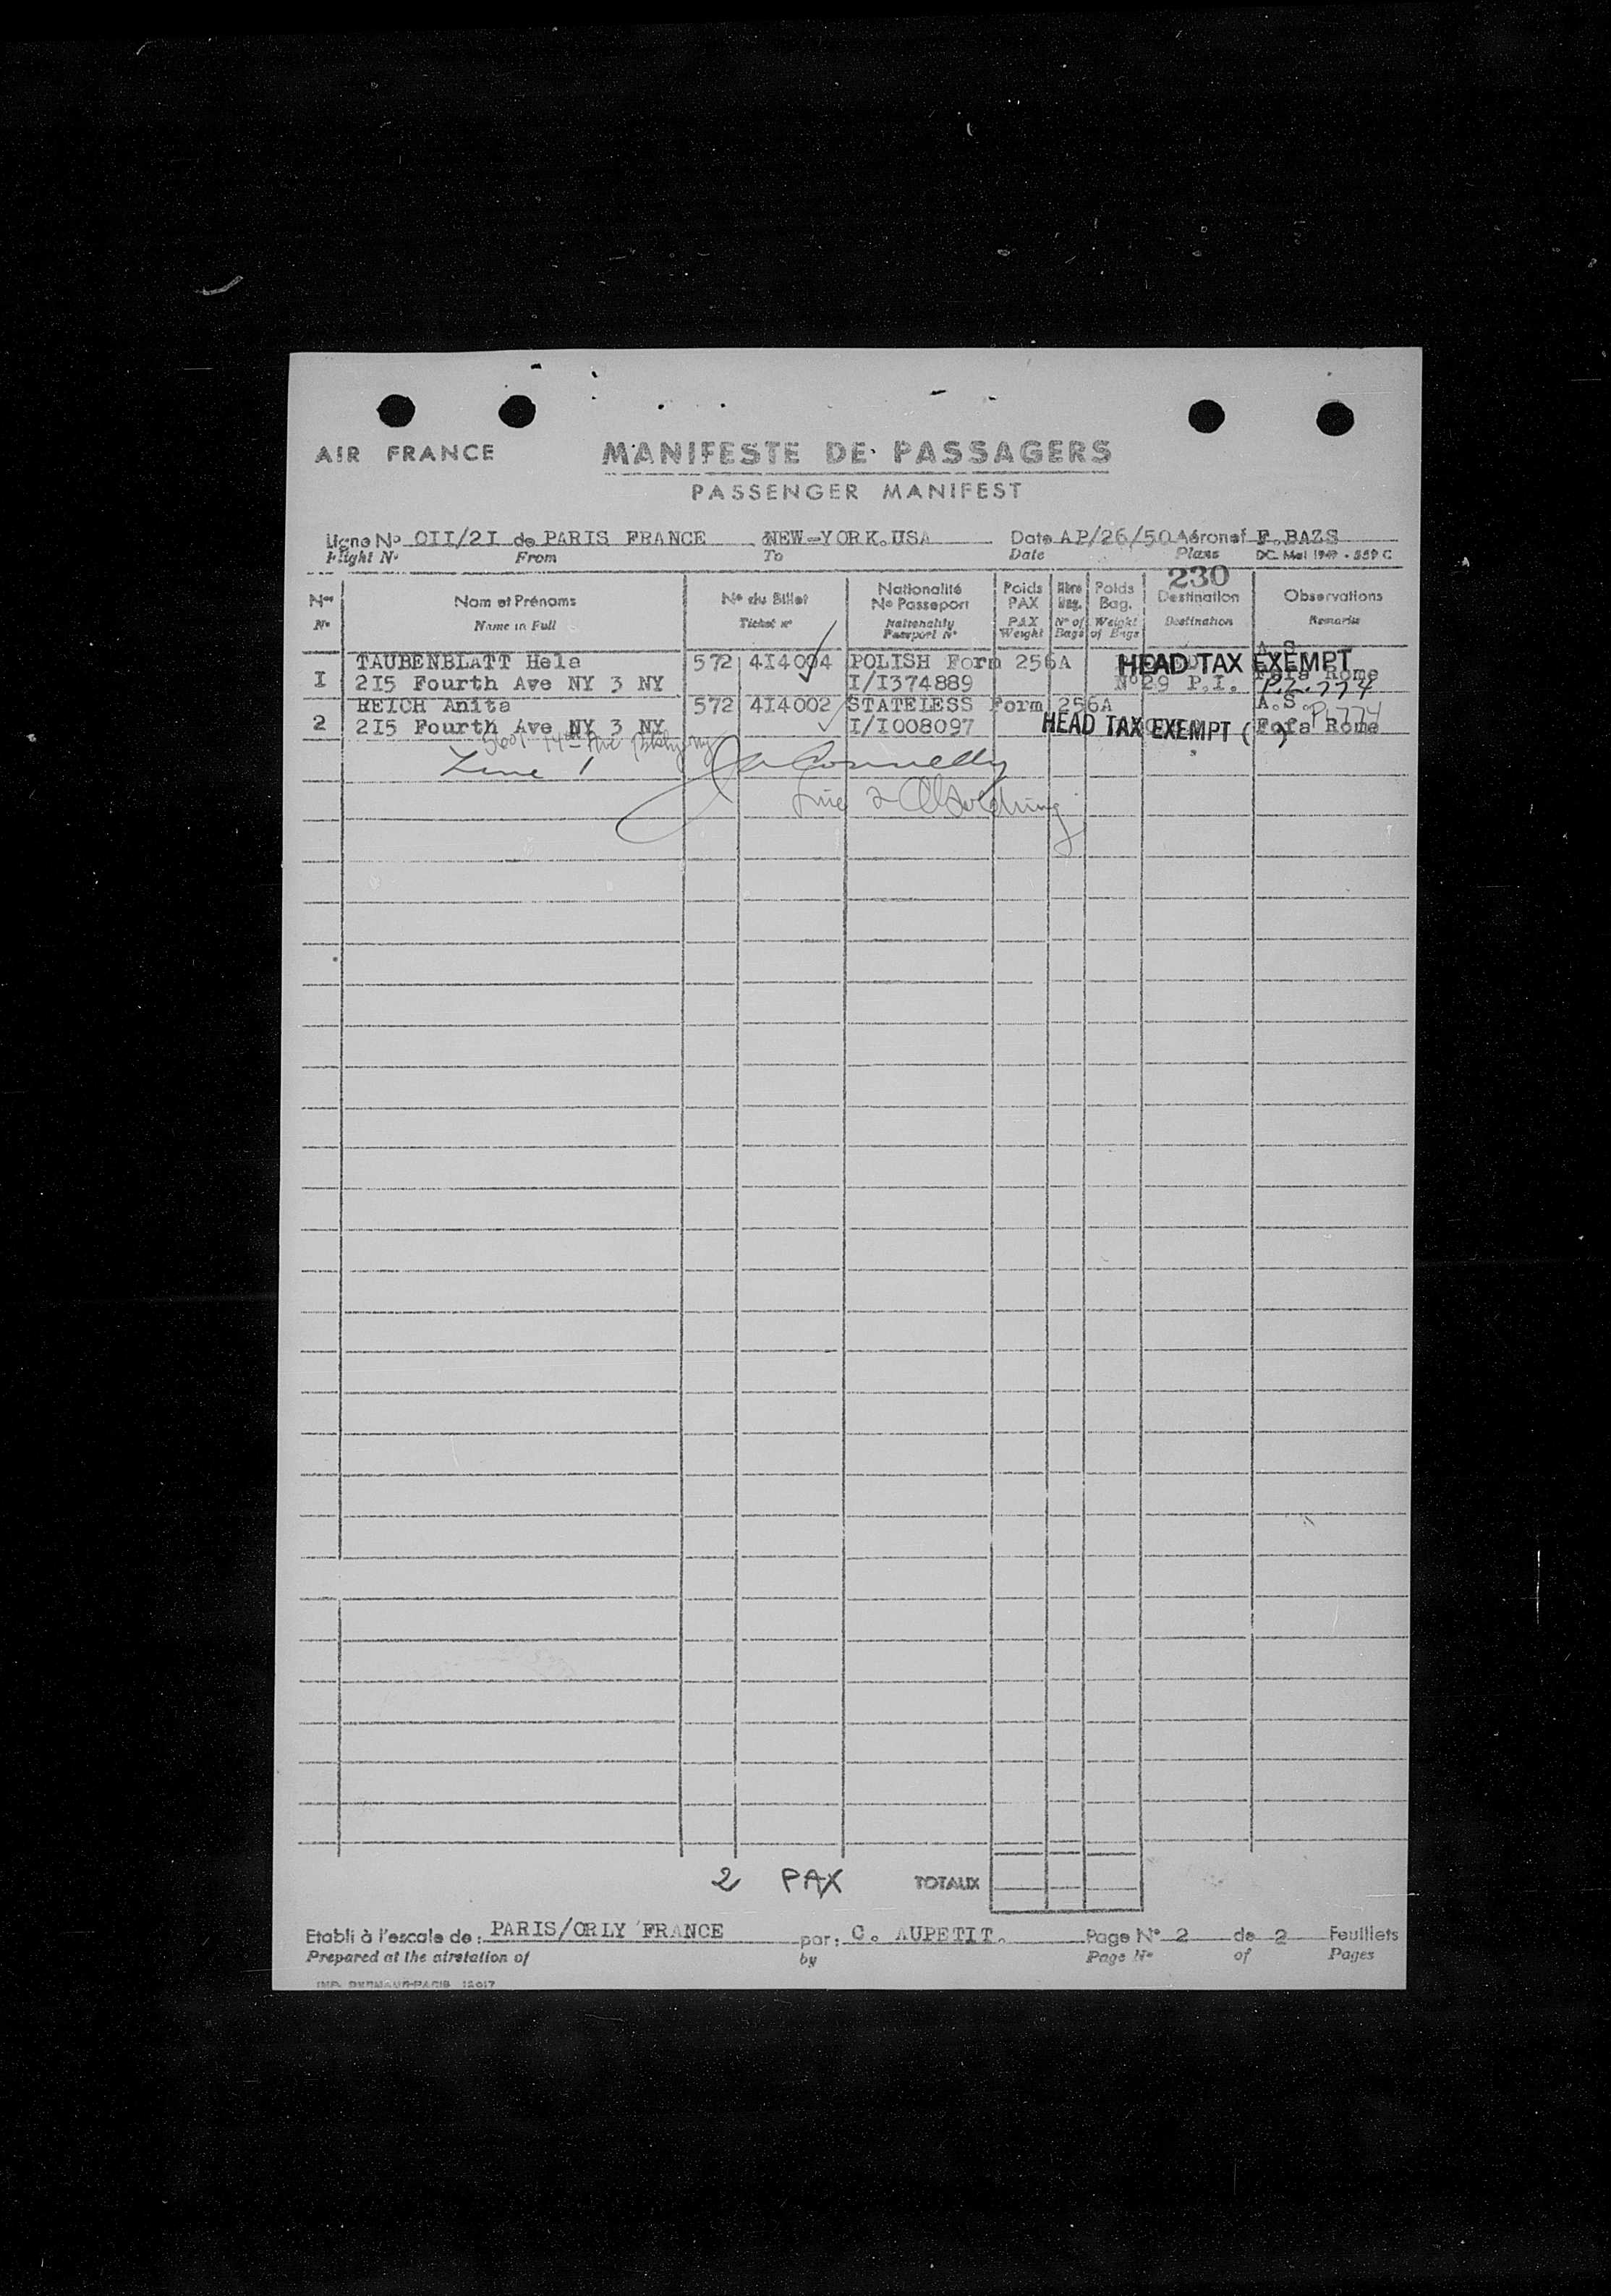 AIR FRANCE
MANIFESTE DE PASSAGERS
PASSENGER MANIFEST
Ligne No OII/2I de PARIS FRANCE NEW-YORK.USA Date AP/26/50 Aéronef F.BAZS
Flight No From To Date Plane DC. Mai 1949 - 559 C
230
Nos Nom et Prénoms No du Billet Nationalité No Passeport Poids PAX Nbre Bag. Poids Bag. Destination Observations
No Name in Full Ticket no Nationality Passport No PAX Weight No of Bags Weight of Bags Destination Remarks
TAUBENBLATT Hela 572 4I4004 POLISH Form 256A HEAD TAX EXEMPT A.S.
I 2I5 Fourth Ave NY 3 NY I/I374889 No29 P.I. Fofa Rome P.L. 774
REICH Anita 572 4I4002 STATELESS Form 256A A.S. P. 774
2 2I5 Fourth Ave NY 3 NY I/I008097 HEAD TAX EXEMPT ( ) Fofa Rome
14th Ave
Line 1 Connelly
Line 2
2 PAX TOTAUX
Etabli à l'escale de : PARIS/ORLY FRANCE par : C. AUPETIT. Page No 2 de 2 Feuillets
Prepared at the airstation of by Page No of Pages
IMP. PARIS 12017